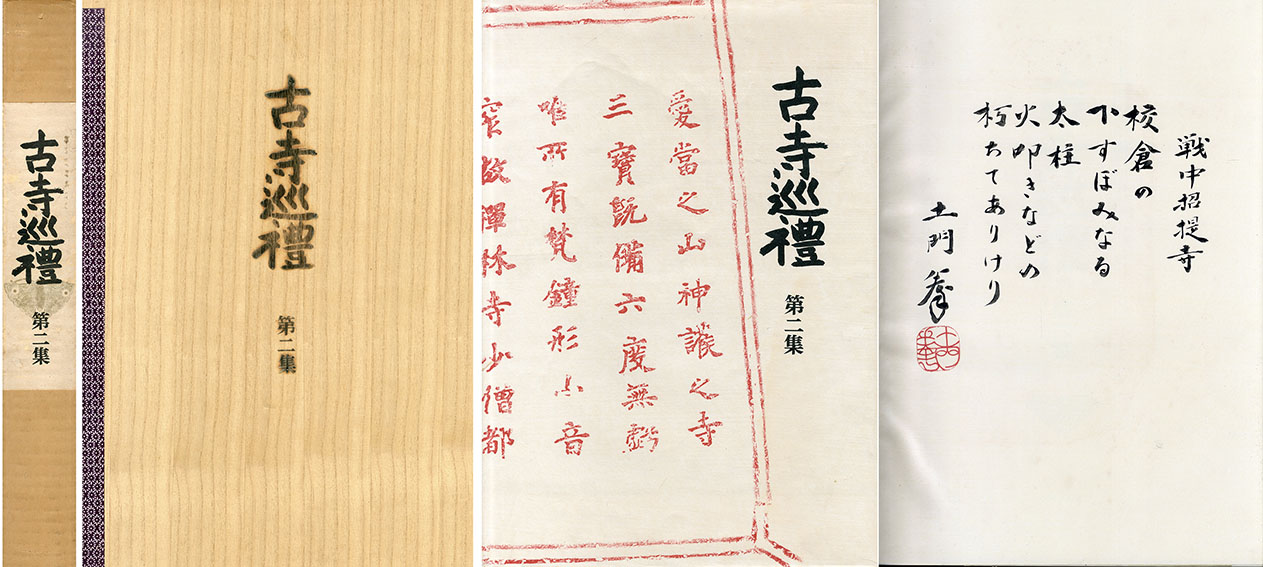 古寺巡禮
第二集
古寺巡禮
第二集
古寺巡禮
第二集
愛當之山神護之寺
三寶既備六度無虧
唯所有梵鐘形小音
窄故禪林寺少僧都
戦中招提寺
校倉の
下すぼみなる
太柱
火叩きなどの
朽ちてありけり
土門拳